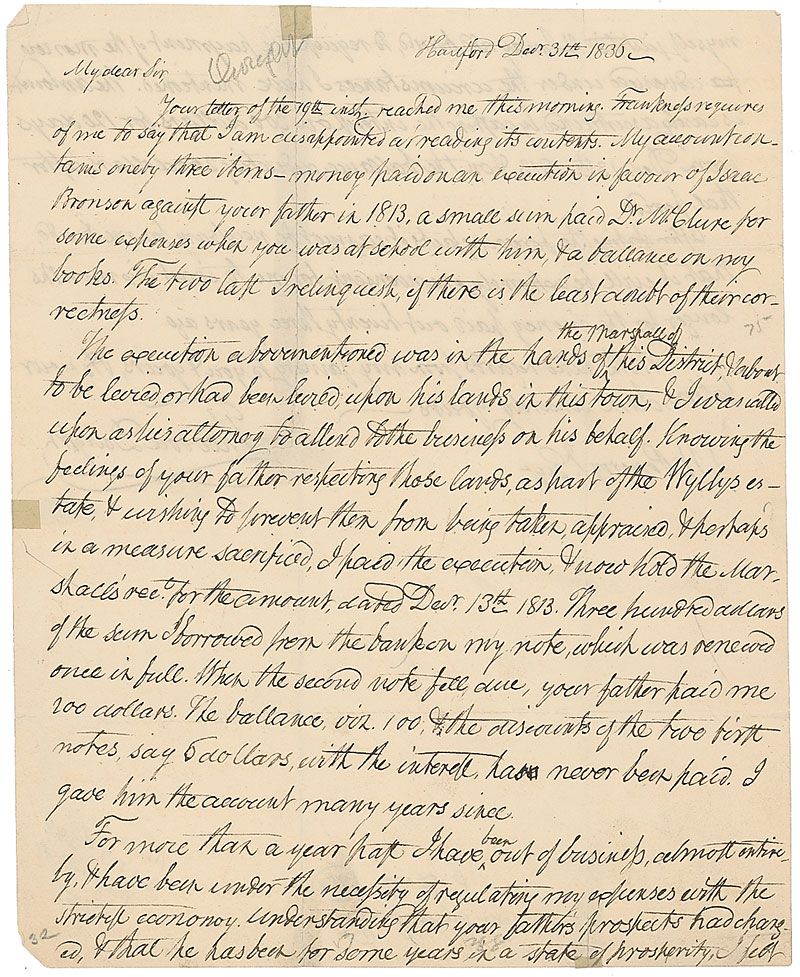 Hartford Decr. 31th 1836
My dear Sir
Your letter of the 19th inst. reached me this morning. Frankness requires
of me to say that I am disappointed at reading its contents. My account con-
tains only three items — money paid on an execution in favour of Isaac
Bronson against your father in 1813, a small sum paid Dr. McClure for
some expenses when you was at school with him, & a ballance on my
books. The two last I relinquish, if there is the least doubt of their cor-
rectness.
75
the Marshall of
The execution abovementioned was in the hands of this District, & about
to be levied or had been levied, upon his lands in this town, & I was called
upon as his attorney to attend to the business on his behalf. Knowing the
feelings of your father respecting those lands, as part of the Wyllys es-
tate, & wishing to prevent them from being taken, appraised, & perhaps
in a measure sacrificed, I paid the execution, & now hold the Mar-
shall's rect. for the amount, dated Decr. 13th 1813. Three hundred dollars
of the sum I borrowed from the bank on my note, which was renewed
once in full. When the second note fell due, your father paid me
200 dollars. The ballance, viz. 100, & the discounts of the two first
notes, say 6 dollars, with the interest, has never been paid. I
gave him the account many years since.
been
For more than a year past I have out of business, almost entire-
ly, & have been under the necessity of regulating my expenses with the
strictest economy. Understanding that your father's prospects had chang-
ed, & that he has been for some years in a state of prosperity, I felt
32